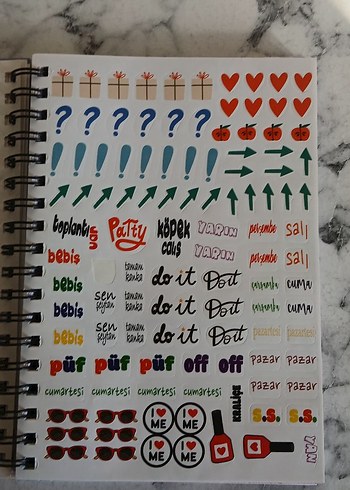 ? ? ? ? ? ? ?
! ! ! ! ! ! ! !
toplantı salı Party köpek çalış YARIN perşembe salı
bebiş YARIN perşembe salı
bebiş tamam kanka do it Do it çarşamba cuma
bebiş sen şeytan tamam kanka do it Do it çarşamba cuma
bebiş sen şeytan tamam kanka do it Do it pazartesi
püf püf püf off off pazar pazar
cumartesi cumartesi cumartesi cumartesi pazar pazar
I ♥ ME I ♥ ME KRALİÇE S.S. S.S.
I ♥ ME I ♥ ME